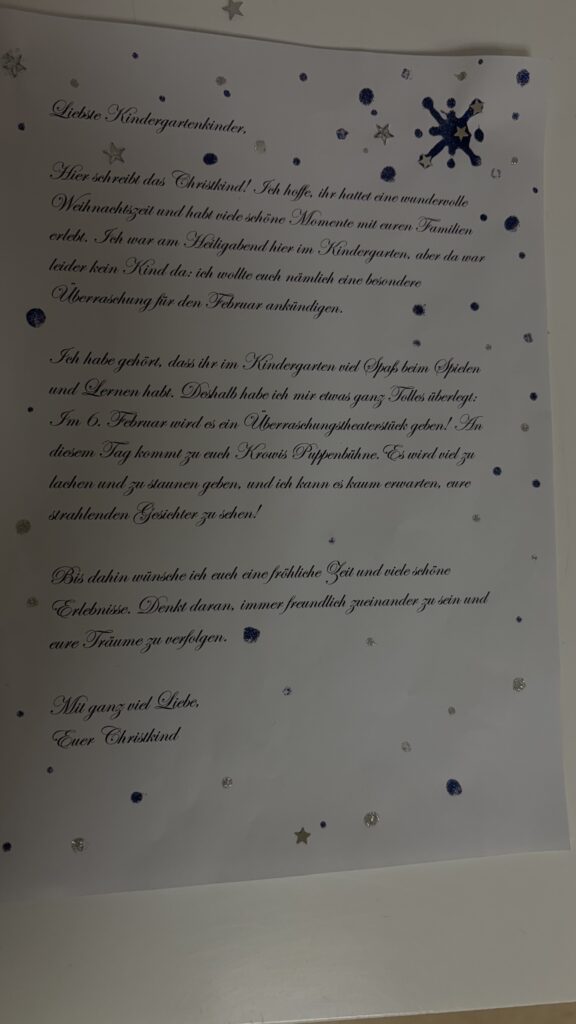 Liebste Kindergartenkinder,
Hier schreibt das Christkind! Ich hoffe, ihr hattet eine wundervolle
Weihnachtszeit und habt viele schöne Momente mit euren Familien
erlebt. Ich war am Heiligabend hier im Kindergarten, aber da war
leider kein Kind da: ich wollte euch nämlich eine besondere
Überraschung für den Februar ankündigen.
Ich habe gehört, dass ihr im Kindergarten viel Spaß beim Spielen
und Lernen habt. Deshalb habe ich mir etwas ganz Tolles überlegt:
Im 6. Februar wird es ein Überraschungstheaterstück geben! An
diesem Tag kommt zu euch Krowis Puppenbühne. Es wird viel zu
lachen und zu staunen geben, und ich kann es kaum erwarten, eure
strahlenden Gesichter zu sehen!
Bis dahin wünsche ich euch eine fröhliche Zeit und viele schöne
Erlebnisse. Denkt daran, immer freundlich zueinander zu sein und
eure Träume zu verfolgen.
Mit ganz viel Liebe,
Euer Christkind